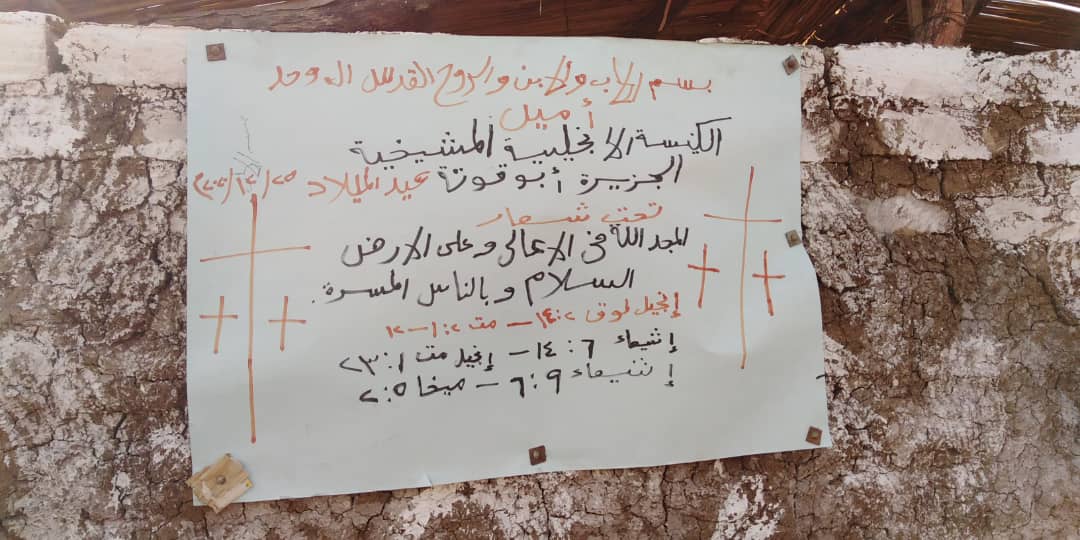 بسم الاب والابن والروح القدس اله وحد
أميل
الكنيسة الانجليية المشيخية
الجزيرة أبو قوتة عيد الميلاد ٢٥/١٢/
تحت شعار
المجد الله فى الاعالى وعلى الارض
السلام وبالناس المسرة.
إنجيل لوق ٢:١٤ – مت ٢:١–١٢
إشيعاء ٦:١٤ – إنجيل مت ١:٢٣
إشيعاء ٩:٦ – ميخا ٥:٢